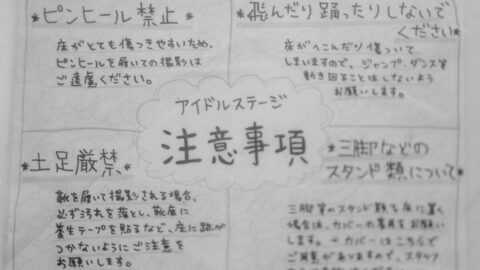 *ピンヒール禁止*
床がとても傷つきやすいため、
ピンヒールを履いての撮影は
ご遠慮ください。
*飛んだり踊ったりしないで
ください*
床がへこんだり傷ついて
しまいますので、ジャンプ、ダンス等
動き回ることはしないよう
お願いします。
アイドルステージ
注意事項
*土足厳禁*
靴を履いて撮影される場合、
必ず汚れを落とし、靴底に
養生テープを貼るなど、床に跡が
つかないようにご注意を
お願いします。
*三脚などの
スタンド類について*
三脚等のスタンド類を床に置く
場合は、カバーの着用をお願い
します。カバーはこちらで
ご用意がありますので、スタッフ